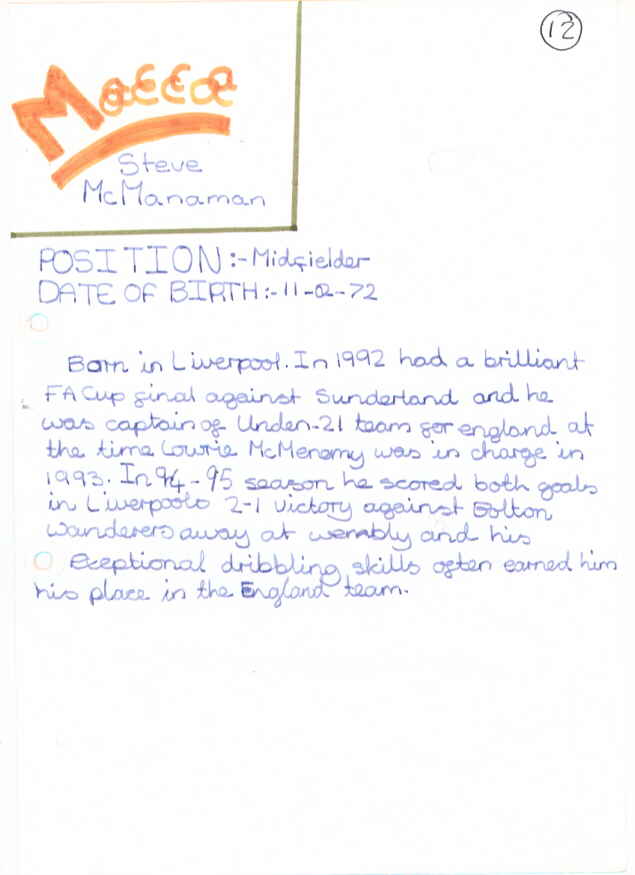 12
Macca
Steve
McManaman
POSITION :- Midfielder
DATE OF BIRTH :- 11-02-72
Born in Liverpool. In 1992 had a brilliant
FA Cup final against Sunderland and he
was captain of Under-21 team for england at
the time Lowrie McMenemy was in charge in
1993. In 94-95 season he scored both goals
in Liverpools 2-1 victory against Bolton
Wanderers away at wembly and his
Exeptional dribbling skills often earned him
his place in the England team.